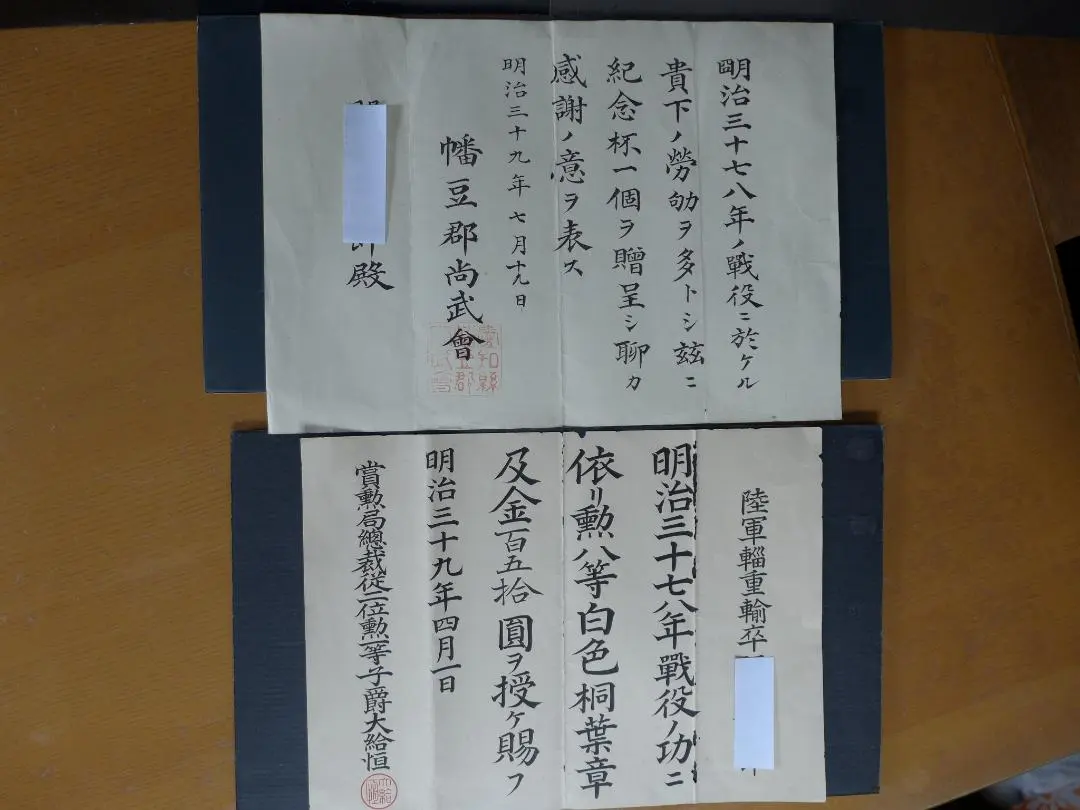 明治三十七八年ノ戰役ニ於ケル
貴下ノ勞劬ヲ多トシ玆ニ
紀念杯一個ヲ贈呈シ聊カ
感謝ノ意ヲ表ス
明治三十九年七月十九日
幡豆郡尚武會
愛知縣
豆郡
殿
陸軍輜重輸卒
明治三十七八年戰役ノ功ニ
依リ勲八等白色桐葉章
及金百五拾圓ヲ授ケ賜フ
明治三十九年四月一日
賞勲局總裁從二位勲一等子爵大給恒